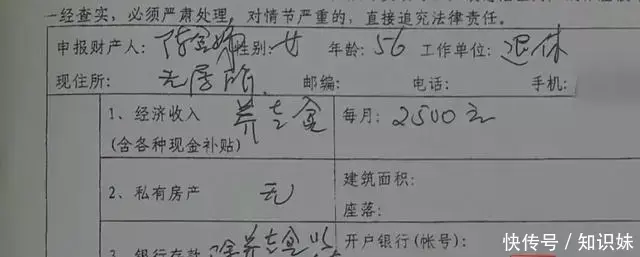 一经查实，必须严肃处理，对情节严重的，直接追究法律责任。
申报财产人：陈 性别：女 年龄：56 工作单位：退休
现住所：无居所 邮编： 电话： 手机：
1、经济收入 养老金 每月：2500元
(含各种现金补贴)
2、私有房产 无 建筑面积：
座落：
3、银行存款 除养老金 开户银行(帐号)：
快传号 / 知识妹